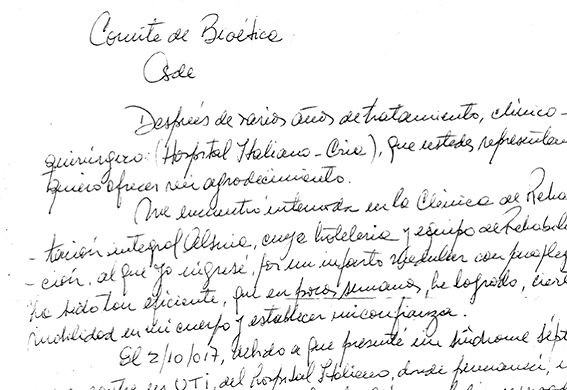 Comité de Bioética
Osde
Después de varios años de tratamiento, clínico-
quirúrgico (Hospital Italiano-Cria), que ustedes representan
quiero ofrecer mi agradecimiento.
Me encuentro internada en la Clínica de Reha
-tación integral Alsina, cuya hotelería y equipo de Rehabili
-ción, al que yo ingresé, por un infarto medular con parapleg
ha sido tan eficiente, que en pocas semanas, he logrado, cier
mobilidad en mi cuerpo y establecer mi confianza.
El 2/10/017, debido a que presenté un síndrome sépt
en UTI, del Hospital Italiano, donde permanecí,